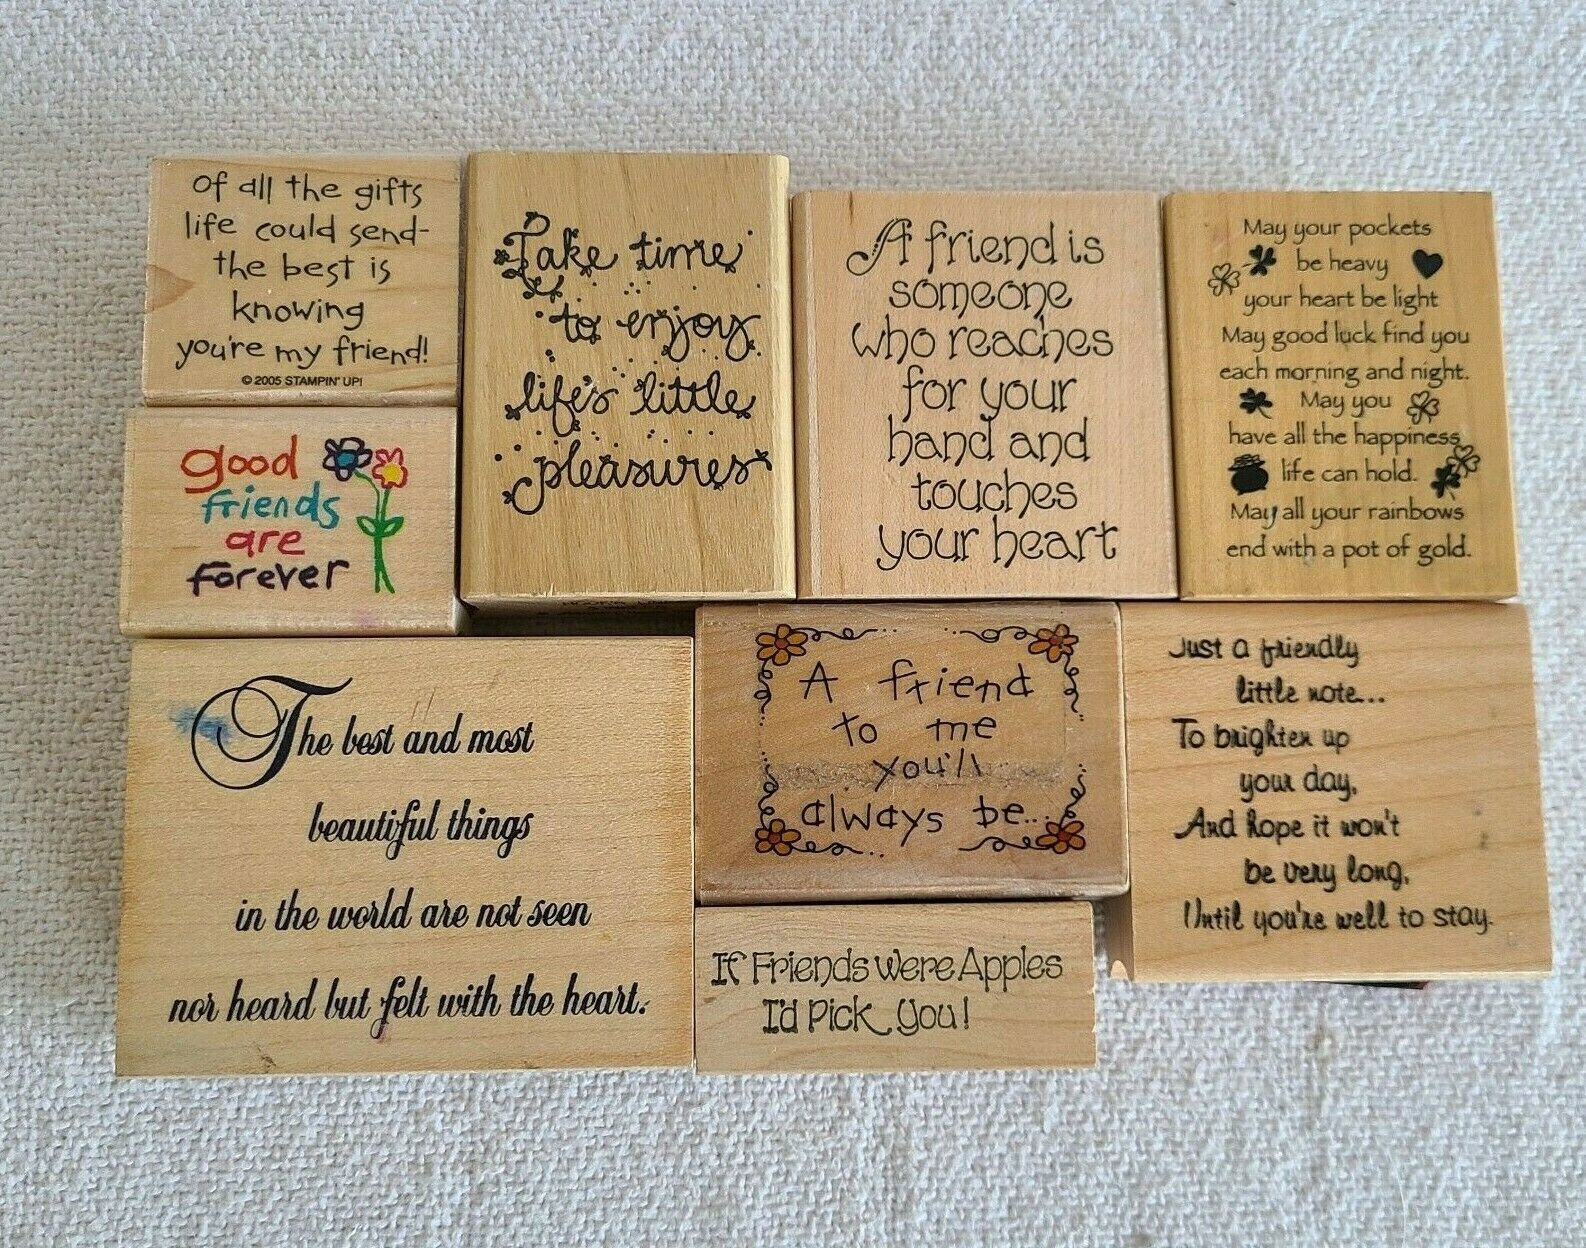 Of all the gifts
life could send-
the best is
knowing
you're my friend!
© 2005 STAMPIN' UP!
Take time
to enjoy
life's little
pleasures
A friend is
someone
who reaches
for your
hand and
touches
your heart
May your pockets
be heavy
your heart be light
May good luck find you
each morning and night.
May you
have all the happiness
life can hold.
May all your rainbows
end with a pot of gold.
good
friends
are
forever
The best and most
beautiful things
in the world are not seen
nor heard but felt with the heart.
A friend
to me
you'll
always be...
Just a friendly
little note...
To brighten up
your day,
And hope it won't
be very long,
Until you're well to stay.
If Friends Were Apples
I'd Pick You!